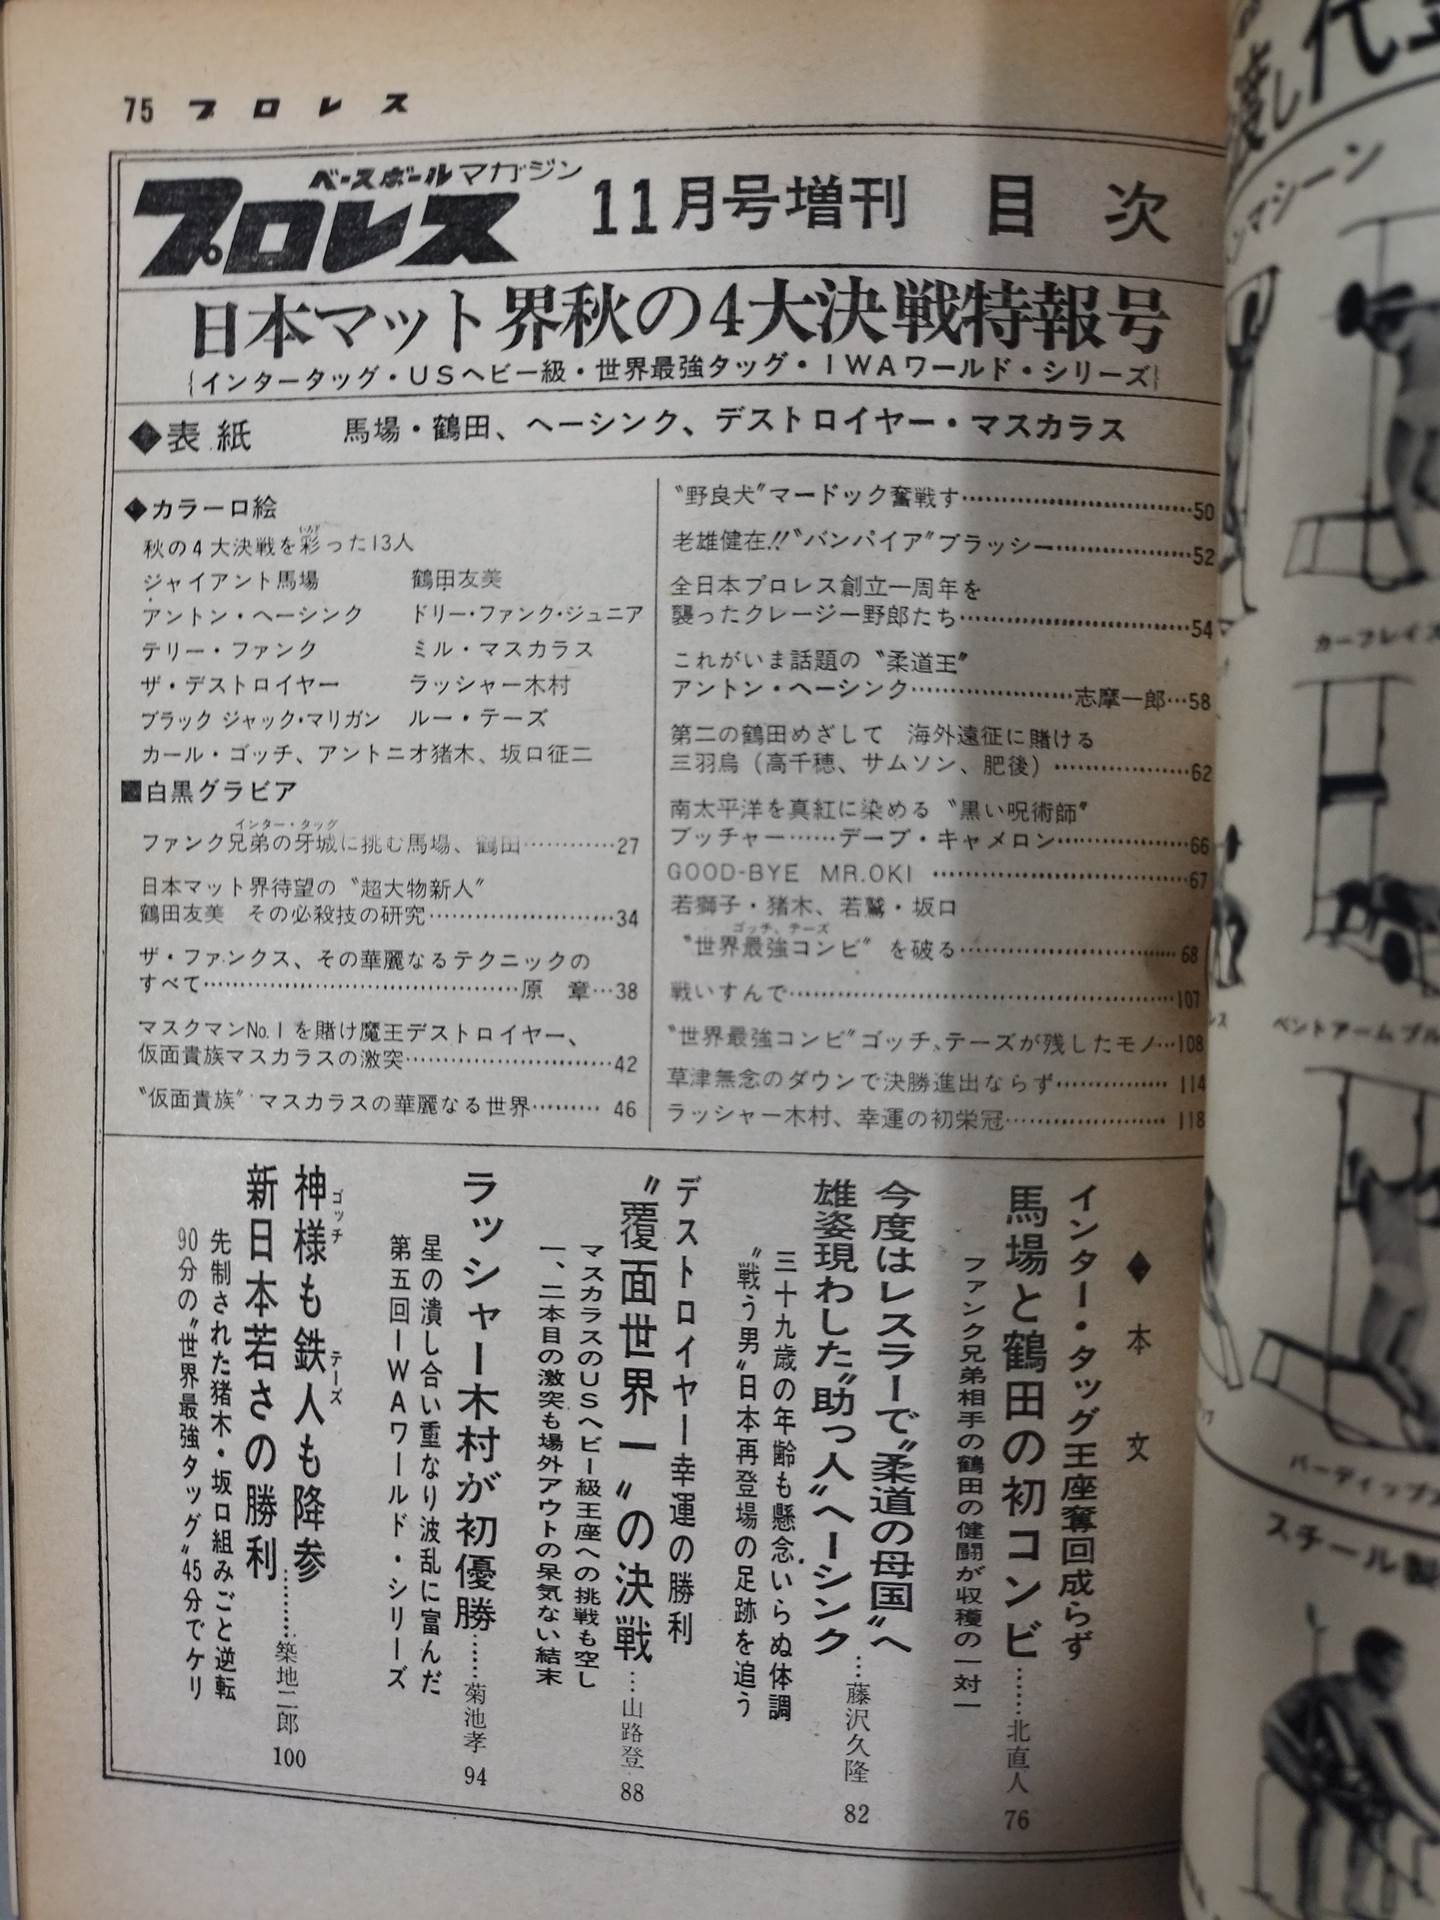 75 プロレス
ベースボールマガジン
プロレス 11月号増刊 目次
日本マット界秋の4大決戦特報号
{インタータッグ・USヘビー級・世界最強タッグ・IWAワールド・シリーズ}
◆表紙 馬場・鶴田、ヘーシンク、デストロイヤー・マスカラス
◆カラー口絵
秋の4大決戦を彩った13人
ジャイアント馬場 鶴田友美
アントン・ヘーシンク ドリー・ファンク・ジュニア
テリー・ファンク ミル・マスカラス
ザ・デストロイヤー ラッシャー木村
ブラック ジャック・マリガン ルー・テーズ
カール・ゴッチ、アントニオ猪木、坂口征二
■白黒グラビア
インター・タッグ
ファンク兄弟の牙城に挑む馬場、鶴田…………27
日本マット界待望の〝超大物新人〟
鶴田友美 その必殺技の研究……………………34
ザ・ファンクス、その華麗なるテクニックの
すべて……………………………………原 章…38
マスクマンNo.1を賭け魔王デストロイヤー、
仮面貴族マスカラスの激突………………………42
〝仮面貴族〟マスカラスの華麗なる世界………46
〝野良犬〟マードック奮戦す………………………50
老雄健在!!〝バンパイア〟ブラッシー………………52
全日本プロレス創立一周年を
襲ったクレージー野郎たち…………………………54
これがいま話題の〝柔道王〟
アントン・ヘーシンク…………………志摩一郎…58
第二の鶴田めざして 海外遠征に賭ける
三羽烏(高千穂、サムソン、肥後)………………62
南太平洋を真紅に染める〝黒い呪術師〟
ブッチャー……デーブ・キャメロン………………66
GOOD-BYE MR.OKI……………………………67
若獅子・猪木、若鷲・坂口
ゴッチ、テーズ
〝世界最強コンビ〟を破る…………………………68
戦いすんで……………………………………………107
〝世界最強コンビ〟ゴッチ、テーズが残したモノ…108
草津無念のダウンで決勝進出ならず……………114
ラッシャー木村、幸運の初栄冠…………………118
◆本文
インター・タッグ王座奪回成らず
馬場と鶴田の初コンビ……北直人 76
ファンク兄弟相手の鶴田の健闘が収穫の一対一
今度はレスラーで〝柔道の母国〟へ
雄姿現わした〝助っ人〟ヘーシンク…藤沢久隆 82
三十九歳の年齢も懸念いらぬ体調
〝戦う男〟日本再登場の足跡を追う
デストロイヤー幸運の勝利
〝覆面世界一〟の決戦…山路登 88
マスカラスのUSヘビー級王座への挑戦も空し
一、二本目の激突も場外アウトの呆気ない結末
ラッシャー木村が初優勝……菊池孝 94
星の潰し合い重なり波乱に富んだ
第五回IWAワールド・シリーズ
ゴッチ テーズ
神様も鉄人も降参
新日本若さの勝利………築地二郎 100
先制された猪木・坂口組みごと逆転
90分の〝世界最強タッグ〟45分でケリ
カーフレイズ
ベントアームプル
スチール製